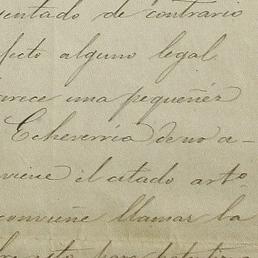 sentado de contrario
efecto alguno legal
parece una pequeñéz
Echeverría de no a-
viene el citado artº
conviene llamar la